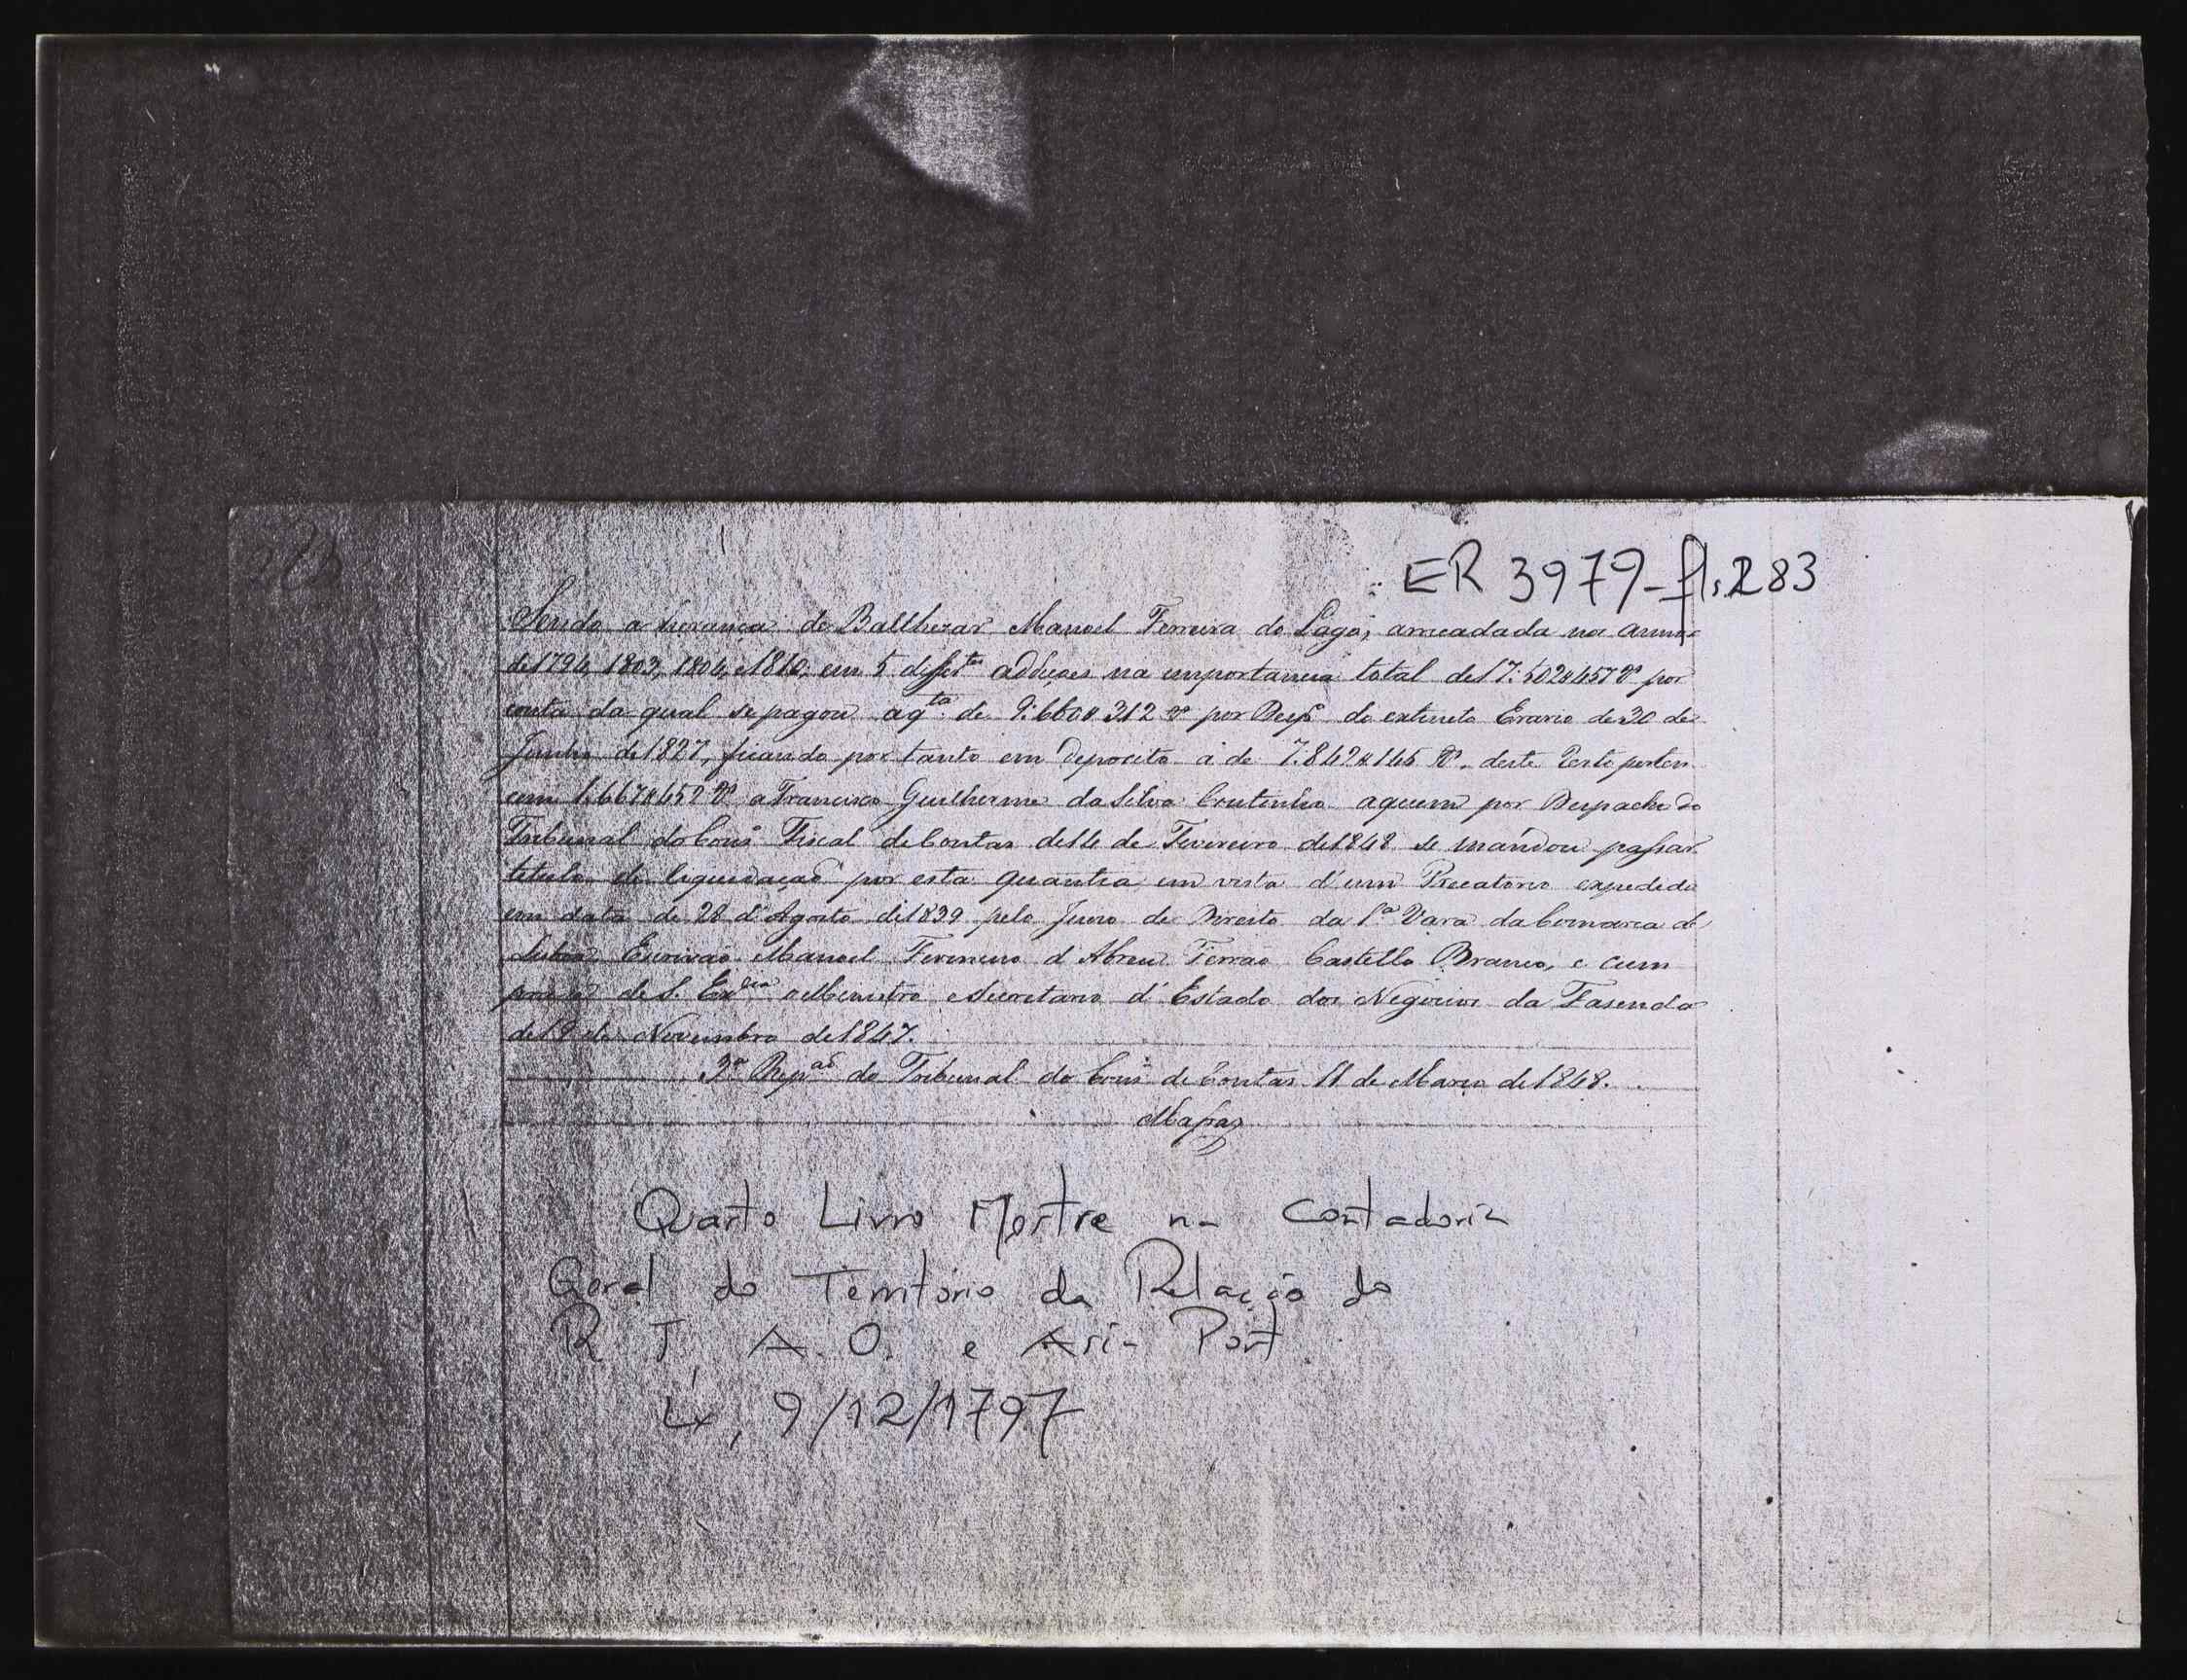 ER 3979-fls. 283
Sendo a herança de Balthezar Manoel Ferreira do Lago, arrecadada nos annos
de 1794, 1803, 1804, e 1810, em 5 differ.tes addições na importancia total de 17:502$457 rs por
conta da qual se pagou a q.ta de 9:660$312 rs por Desp.o do extincto Erario de 30 de
Junho de 1827, ficando por tanto em deposito a de 7.842$145 rs. deste Resto perten-
cem 1.667$452 rs a Francisco Guilherme da Silva Coutinho aquem por Despacho do
Tribunal do Cons.o Fiscal de Contas de 14 de Fevereiro de 1848 se mandou passar
titulo de liquidação por esta quantia em vista d'um Precatorio expedido
em data de 28 d'Agosto de 1839 pelo Juizo de Direito da 1.a Vara da Comarca de
Lisboa Escrivão Manoel Firmino d'Abreu Ferrão Castello Branco, e cum
de S. Ex.cia o Ministro e Secretario d'Estado dos Negocios da Fasenda
de 19 de Novembro de 1847.
3.a Rep.ão do Tribunal do Cons.o de Contas 11 de Março de 1848.
Quarto Livro Mestre na Contadoria
Geral do Território da Relação do
R. J, A. O. e Asia Port.
Lx, 9/12/1797